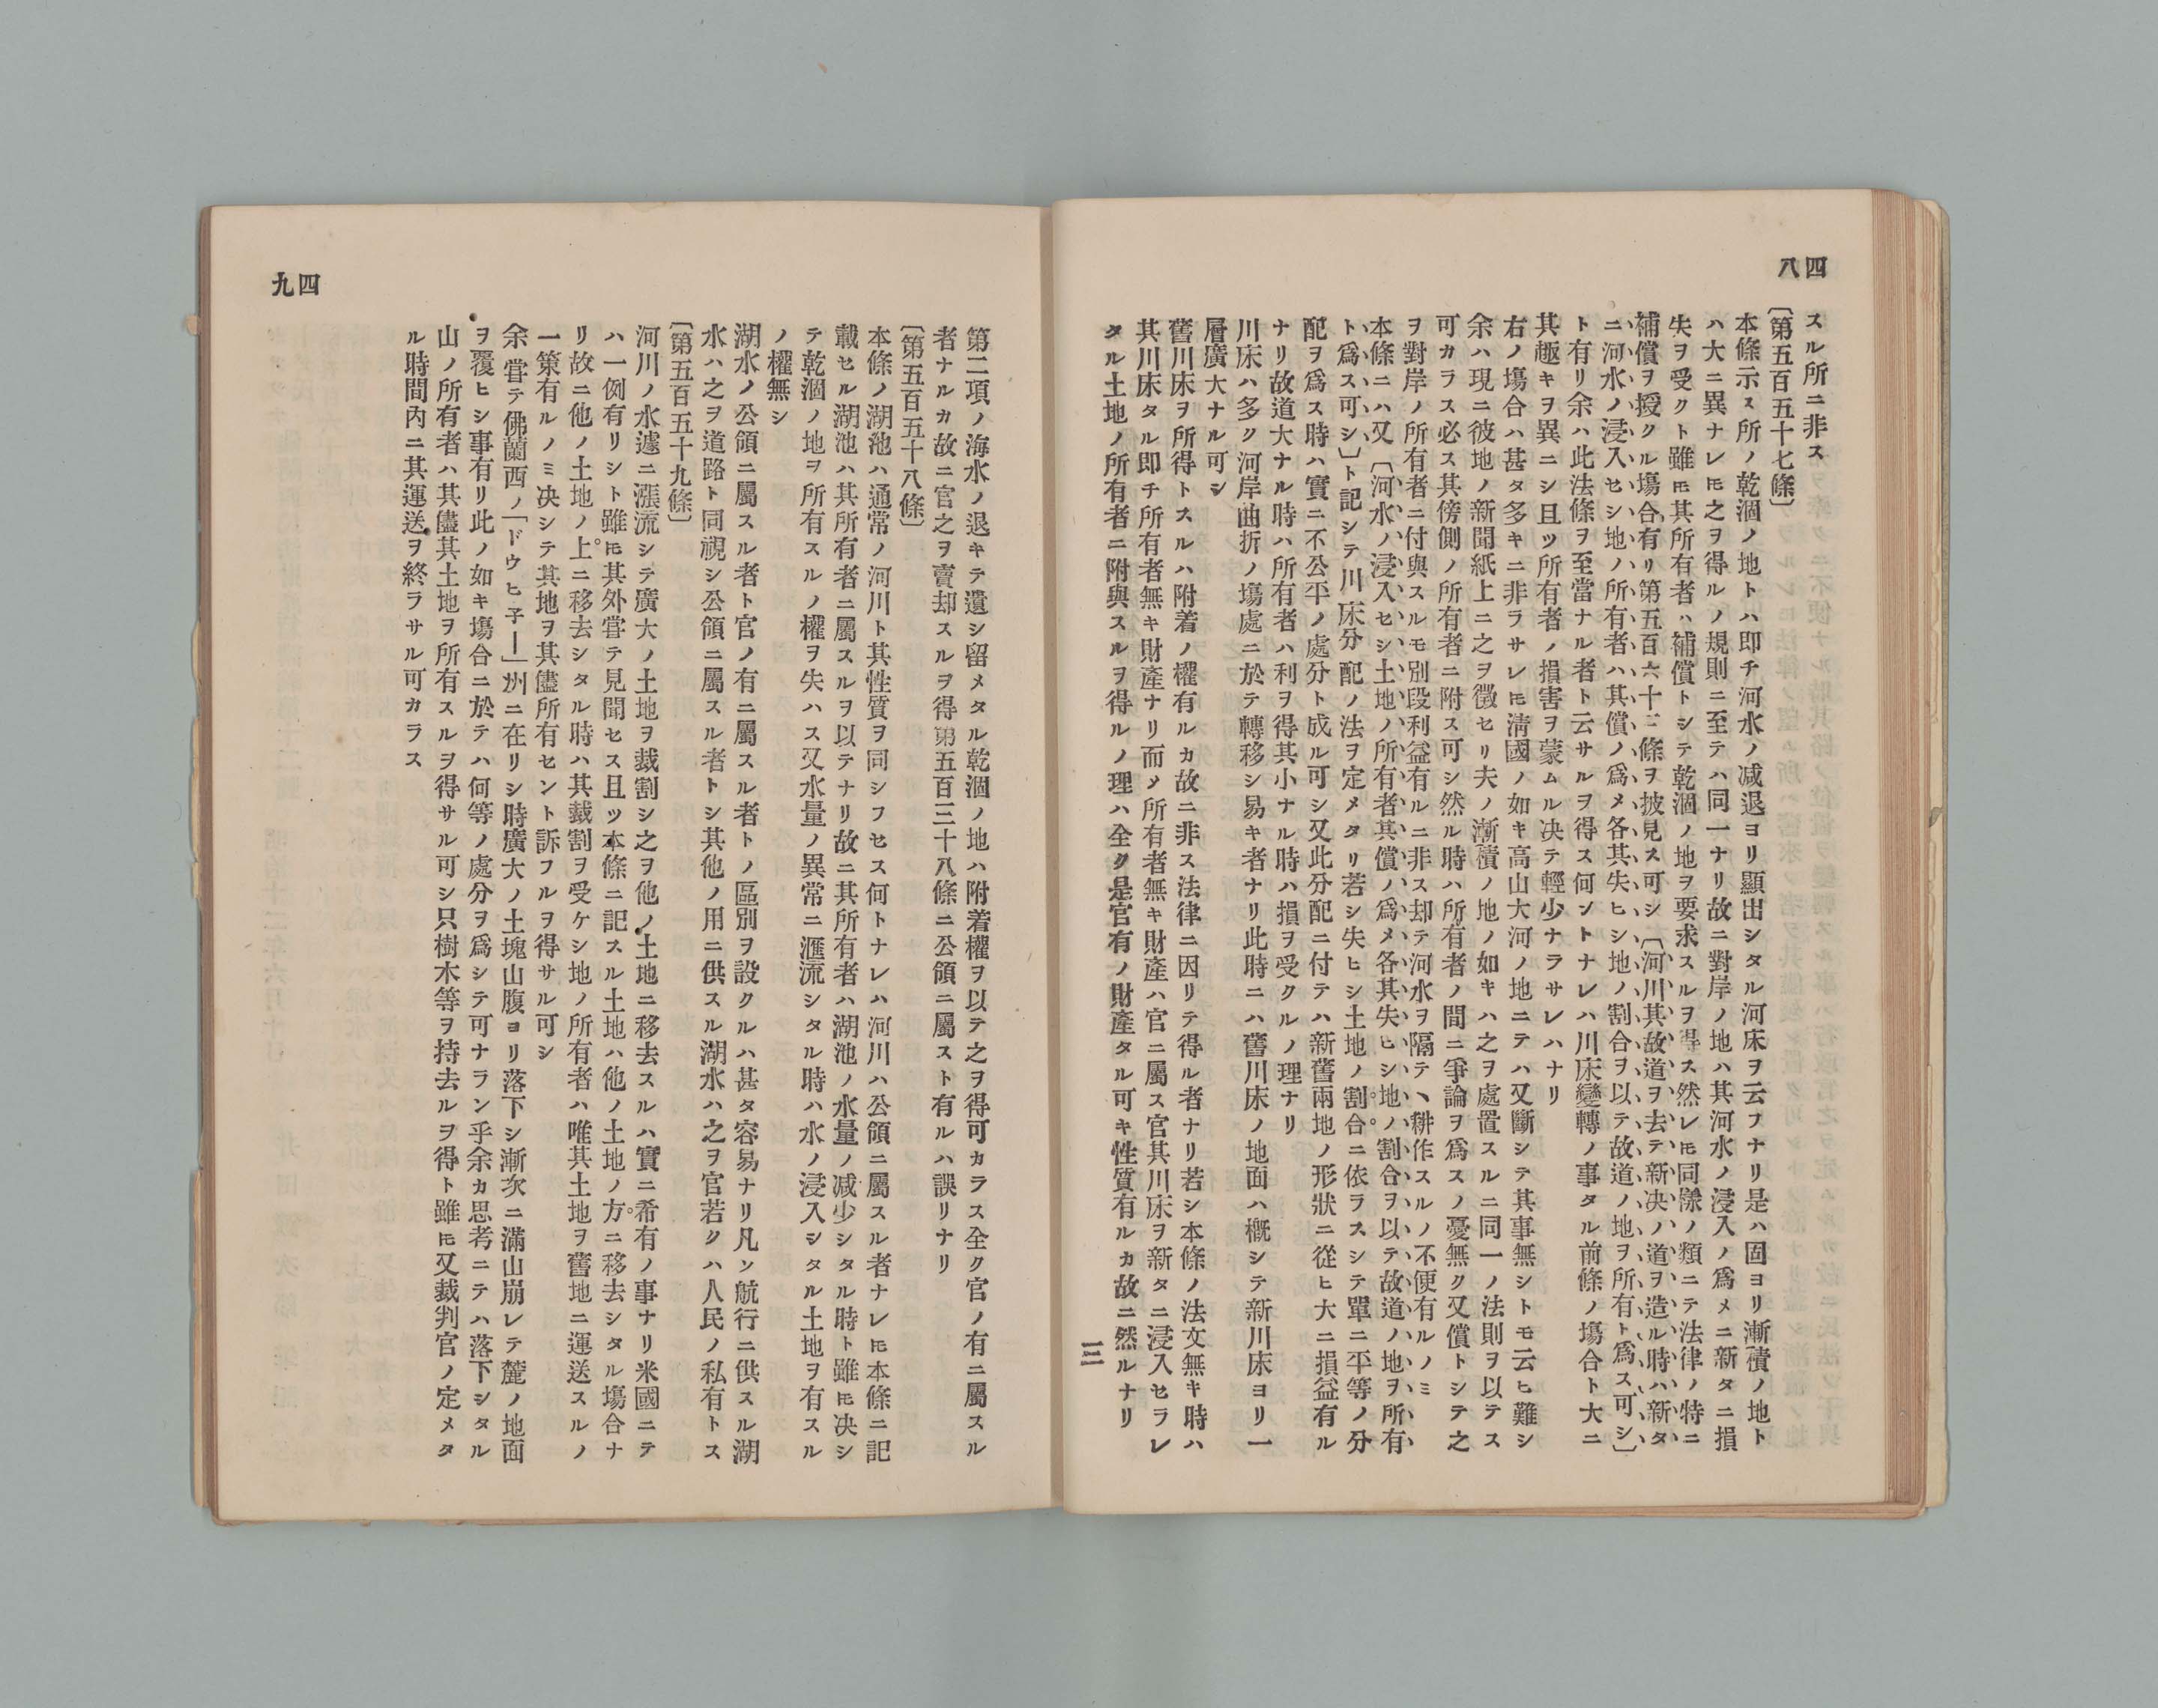 四八
スル所ニ非ス
〔第五百五十七條〕
本條示ス所ノ乾涸ノ地トハ即チ河水ノ減退ヨリ顯出シタル河床ヲ云フナリ是ハ固ヨリ漸積ノ地ト
ハ大ニ異ナレ𪜈之ヲ得ルノ規則ニ至テハ同一ナリ故ニ對岸ノ地ハ其河水ノ浸入ノ爲メニ新タニ損
失ヲ受クト雖𪜈其所有者ハ補償トシテ乾涸ノ地ヲ要求スルヲ得ス然レ𪜈同樣ノ類ニテ法律ノ特ニ
補償ヲ授クル塲合有リ第五百六十三條ヲ披見ス可シ〔河川其故道ヲ去テ新决ノ道ヲ造ル時ハ新タ
ニ河水ノ浸入セシ地ノ所有者ハ其償ノ爲メ各其失ヒシ地ノ割合ヲ以テ故道ノ地ヲ所有ト爲ス可シ〕
ト有リ余ハ此法條ヲ至當ナル者ト云サルヲ得ス何ントナレハ川床變轉ノ事タル前條ノ塲合ト大ニ
其趣キヲ異ニシ且ツ所有者ノ損害ヲ蒙ムル决テ輕少ナラサレハナリ
右ノ塲合ハ甚タ多キニ非ラサレ𪜈淸國ノ如キ高山大河ノ地ニテハ又斷シテ其事無シトモ云ヒ難シ
余ハ現ニ彼地ノ新聞紙上ニ之ヲ徵セリ夫ノ漸積ノ地ノ如キハ之ヲ處置スルニ同一ノ法則ヲ以テス
可カラス必ス其傍側ノ所有者ニ附ス可シ然ル時ハ所有者ノ間ニ爭論ヲ爲スノ憂無ク又償トシテ之
ヲ對岸ノ所有者ニ付與スルモ別段利益有ルニ非ス却テ河水ヲ隔テヽ耕作スルノ不便有ルノミ
本條ニハ又〔河水ノ浸入セシ土地ノ所有者其償ノ爲メ各其失ヒシ地ノ割合ヲ以テ故道ノ地ヲ所有
ト爲ス可シ〕ト記シテ川床分配ノ法ヲ定メタリ若シ失ヒシ土地ノ割合ニ依ラスシテ單ニ平等ノ分
配ヲ爲ス時ハ實ニ不公平ノ處分ト成ル可シ又此分配ニ付テハ新舊兩地ノ形狀ニ從ヒ大ニ損益有ル
ナリ故道大ナル時ハ所有者ハ利ヲ得其小ナル時ハ損ヲ受クルノ理ナリ
川床ハ多ク河岸曲折ノ塲處ニ於テ轉移シ易キ者ナリ此時ニハ舊川床ノ地面ハ概シテ新川床ヨリ一
層廣大ナル可シ
舊川床ヲ所得トスルハ附着ノ權有ルカ故ニ非ス法律ニ因リテ得ル者ナリ若シ本條ノ法文無キ時ハ
其川床タル即チ所有者無キ財產ナリ而メ所有者無キ財產ハ官ニ屬ス官其川床ヲ新タニ浸入セラレ
タル土地ノ所有者ニ附與スルヲ得ルノ理ハ全ク是官有ノ財產タル可キ性質有ルカ故ニ然ルナリ
三
四九
第二項ノ海水ノ退キテ遺シ留メタル乾涸ノ地ハ附着權ヲ以テ之ヲ得可カラス全ク官ノ有ニ屬スル
者ナルカ故ニ官之ヲ賣却スルヲ得第五百三十八條ニ公領ニ屬スト有ルハ誤リナリ
〔第五百五十八條〕
本條ノ湖池ハ通常ノ河川ト其性質ヲ同シフセス何トナレハ河川ハ公領ニ屬スル者ナレ𪜈本條ニ記
載セル湖池ハ其所有者ニ屬スルヲ以テナリ故ニ其所有者ハ湖池ノ水量ノ減少シタル時ト雖𪜈决シ
テ乾涸ノ地ヲ所有スルノ權ヲ失ハス又水量ノ異常ニ滙流シタル時ハ水ノ浸入シタル土地ヲ有スル
ノ權無シ
湖水ノ公領ニ屬スル者ト官ノ有ニ屬スル者トノ區別ヲ設クルハ甚タ容易ナリ凡ソ航行ニ供スル湖
水ハ之ヲ道路ト同視シ公領ニ屬スル者トシ其他ノ用ニ供スル湖水ハ之ヲ官若クハ人民ノ私有トス
〔第五百五十九條〕
河川ノ水遽ニ漲流シテ廣大ノ土地ヲ裁割シ之ヲ他ノ土地ニ移去スルハ實ニ希有ノ事ナリ米國ニテ
ハ一例有リシト雖𪜈其外甞テ見聞セス且ツ本條ニ記スル土地ハ他ノ土地ノ方ニ移去シタル塲合ナ
リ故ニ他ノ土地ノ上ニ移去シタル時ハ其裁割ヲ受ケシ地ノ所有者ハ唯其土地ヲ舊地ニ運送スルノ
一策有ルノミ决シテ其地ヲ其儘所有セント訴フルヲ得サル可シ
余甞テ佛蘭西ノ「ドウヒ子ー」州ニ在リシ時廣大ノ土塊山腹ヨリ落下シ漸次ニ滿山崩レテ麓ノ地面
ヲ覆ヒシ事有リ此ノ如キ塲合ニ於テハ何等ノ處分ヲ爲シテ可ナラン乎余カ思考ニテハ落下シタル
山ノ所有者ハ其儘其土地ヲ所有スルヲ得サル可シ只樹木等ヲ持去ルヲ得ト雖𪜈又裁判官ノ定メタ
ル時間內ニ其運送ヲ終ラサル可カラス